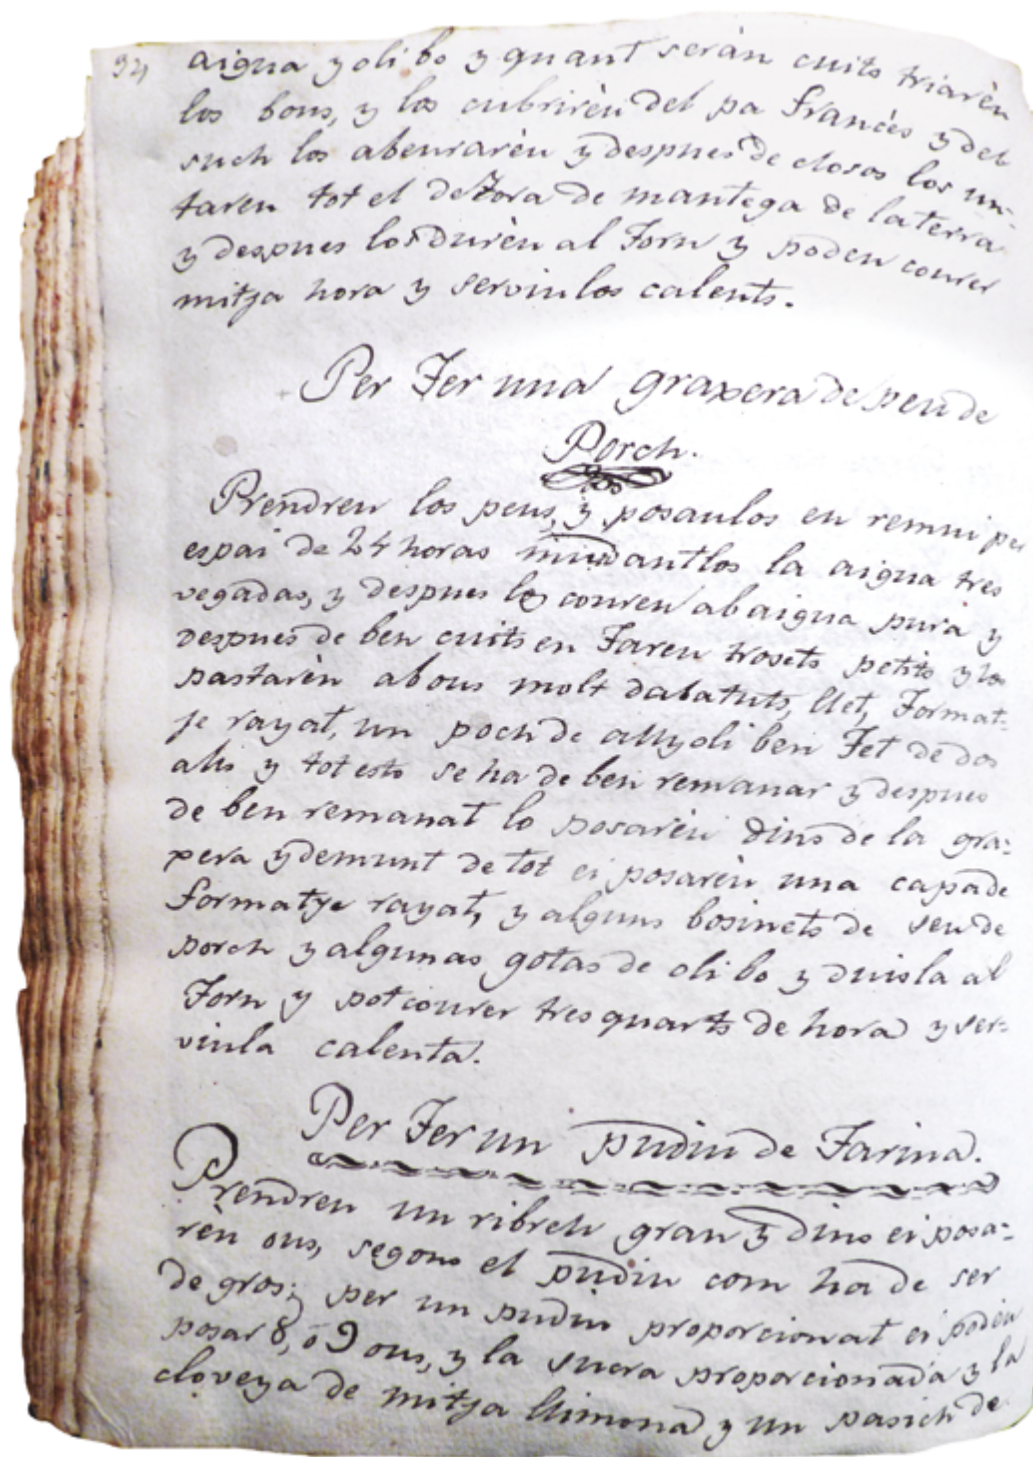 94
aigua y oli bo y quant seràn cuits triarèu
los bons, y los cubrirèu del pa francès y del
such los abeurarèu y despues de closos los un-
tareu tot el defora de mantega de la terra
y despues los durèu al Forn y poden courer
mitja hora y serviulos calents.
Per Fer una graxera de peu de
Porch.
Prendreu los peus, y posaulos en remui per
espai de 24 horas mudantlos la aigua tres
vegadas, y despues los coureu ab aigua pura y
despues de ben cuits en Fareu trosets petits y los
pastarèu ab ous molt dabatuts, llet, Format-
je rayat, un poch de allyoli ben Fet de dos
alls y tot esto se ha de ben remanar y despues
de ben remanat lo posarèu dins de la gra=
xera y demunt de tot ei posarèu una capa de
formatje rayat, y alguns bosinets de seu de
porch y algunas gotas de oli bo y duisla al
Forn y pot courer tres quarts de hora y ser=
viula calenta.
Per Fer un pudin de Farina.
Prendreu un ribrell gran y dins ei posa=
rèu ous, segons el pudin com ha de ser
de gros; per un pudin proporcionat ei podeu
posar 8, ó 9 ous, y la sucra proporcionada y la
cloveya de mitja llimona y un pasich de